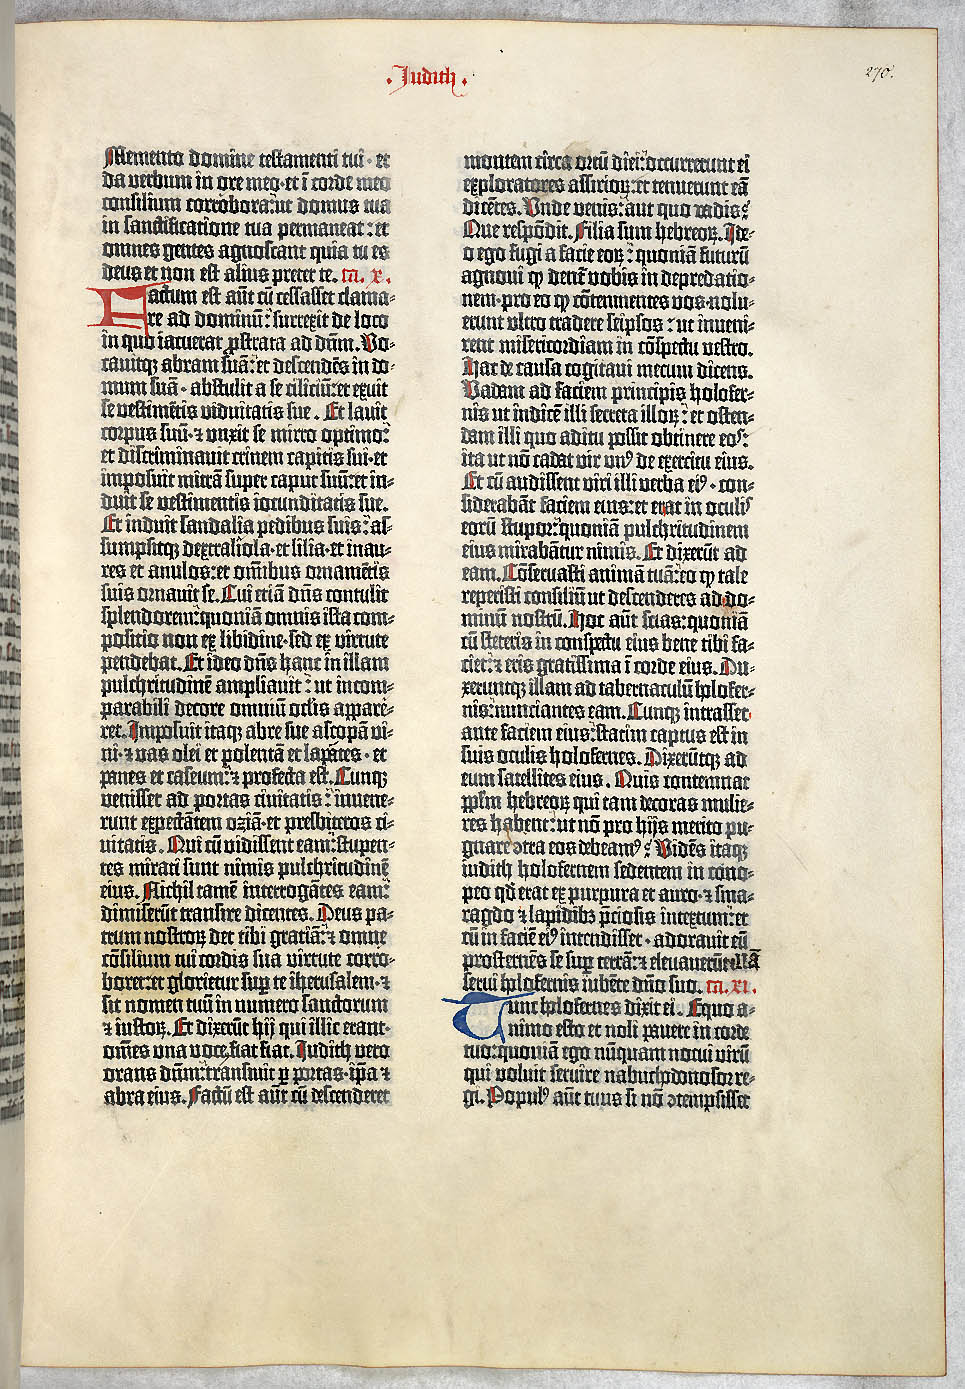 ·Judith·
270.
Memento domine testamenti tui · et
da verbum in ore meo · et ī corde meo
consilium corrobora: ut domus tua
in sanctificatione tua permaneat: et
omnes gentes agnoscant quia tu es
deus et non est alius preter te. ca. x.
Factum est autē cū cessasset clama-
re ad dominū: surrexit de loco
in quo iacuerat ꝓstrata ad dūm. Vo-
cauitqꝫ abram suā: et descendēs in do-
mum suā · abstulit a se ciliciū: et exuit
se vestimētis viduitatis sue. Et lauit
corpus suū · ⁊ vnxit se mirro optimo:
et discriminauit crinem capitis sui · et
imposuit mitrā super caput suū: et in-
duit se vestimentis iocunditatis sue.
Et induit sandalia pedibus suis: as-
sumpsitqꝫ dextraliola · et lilia · et inau-
res et anulos: et omībus ornamētis
suis ornauit se. Cui etiā dn̄s contulit
splendorem: quoniā omnis ista com-
positio non ex libidine · sed ex virtute
pendebat. Et ideo dn̄s hanc in illam
pulchritudinē ampliauit: ut incom-
parabili decore omniū oclis appare-
ret. Imposuit itaqꝫ abre sue ascopā vi-
ni · ⁊ vas olei et polentā et lapātes · et
panes et caseum: ⁊ profecta est. Cunqꝫ
venisset ad portas ciuitatis: inuene-
runt expectātem oziā · et presbiteros ci-
uitatis. Qui cū vidissent eam: stupen-
tes mirati sunt nimis pulchritudinē
eius. Nichil tamē interrogātes eam:
dimiserūt transire dicentes. Deus pa-
trum nostroꝝ det tibi gratiā: ⁊ omne
cōsilium tui cordis sua virtute corro-
boret: et glorietur suꝑ te iherusalem · ⁊
sit nomen tuū in numero sanctorum
⁊ iustoꝝ. Et dixerūt hij qui illic erant ·
om̄es vna voce. fiat fiat. Judith vero
orans dūm: transiuit ꝑ portas · ip̄a ⁊
abra eius. Factū est aūt cū descenderet
montem circa ortū diei: occurrerunt ei
exploratores assirioꝝ: et tenuerunt eā
dicētes. Vnde venis: aut quo vadis?
Que respōdit. Filia sum hebreoꝝ. Ide-
o ego fugi a facie eoꝝ: quoniā futurū
agnoui ꝙ dent̄ vobis in depredatio-
nem · pro eo ꝙ cōtemnentes vos · nolu-
erunt vltro tradere seipsos: ut inueni-
rent misericordiam in cōspectu vestro.
Hac de causa cogitaui mecum dicens.
Vadam ad faciem principis holofer-
nis ut indicē illi secreta illoꝝ: et osten-
dam illi quo aditu possit obtinere eos:
ita ut nō cadat vir vnꝰ de exercitu eius.
Et cū audissent viri illi verba eiꝰ · con-
siderabāt faciem eius: et erat in oculis
eorū stupor: quoniā pulchritudinem
eius mirabātur nimis. Et dixerūt ad
eam. Cōseruasti animā tuā: eo ꝙ tale
reperisti consiliū ut descenderes ad do-
minū nostrū. Hoc aūt scias: quoniā
cū steteris in conspectu eius bene tibi fa-
ciet: ⁊ eris gratissima ī corde eius. Du-
xeruntqꝫ illam ad tabernaculū holofer-
nis: nunciantes eam. Cunqꝫ intrasset
ante faciem eius: statim captus est in
suis oculis holofernes. Dixerūtqꝫ ad
eum satellites eius. Quis contemnat
ppl̄m hebreoꝝ qui tam decoras mulie-
res habent: ut nō pro hijs merito pu-
gnare ꝯtra eos debeamꝰ? Vidēs itaqꝫ
iudith holofernem sedentem in cono-
peo qd̄ erat ex purpura et auro · ⁊ sma-
ragdo ⁊ lapidibꝫ p̄ciosis intextum: et
cū in faciē eiꝰ intendisset · adorauit eū
prosternēs se suꝑ terrā: ⁊ eleuauerūt eā
serui holofernis iubēte dn̄o suo. ca. xi.
Tunc holofernes dixit ei. Equo a-
nimo esto et noli pauere in corde
tuo: quoniā ego nūquam nocui virū
qui voluit seruire nabuchodonosor re-
gi. Populꝰ aūt tuus si nō ꝯtempsisset